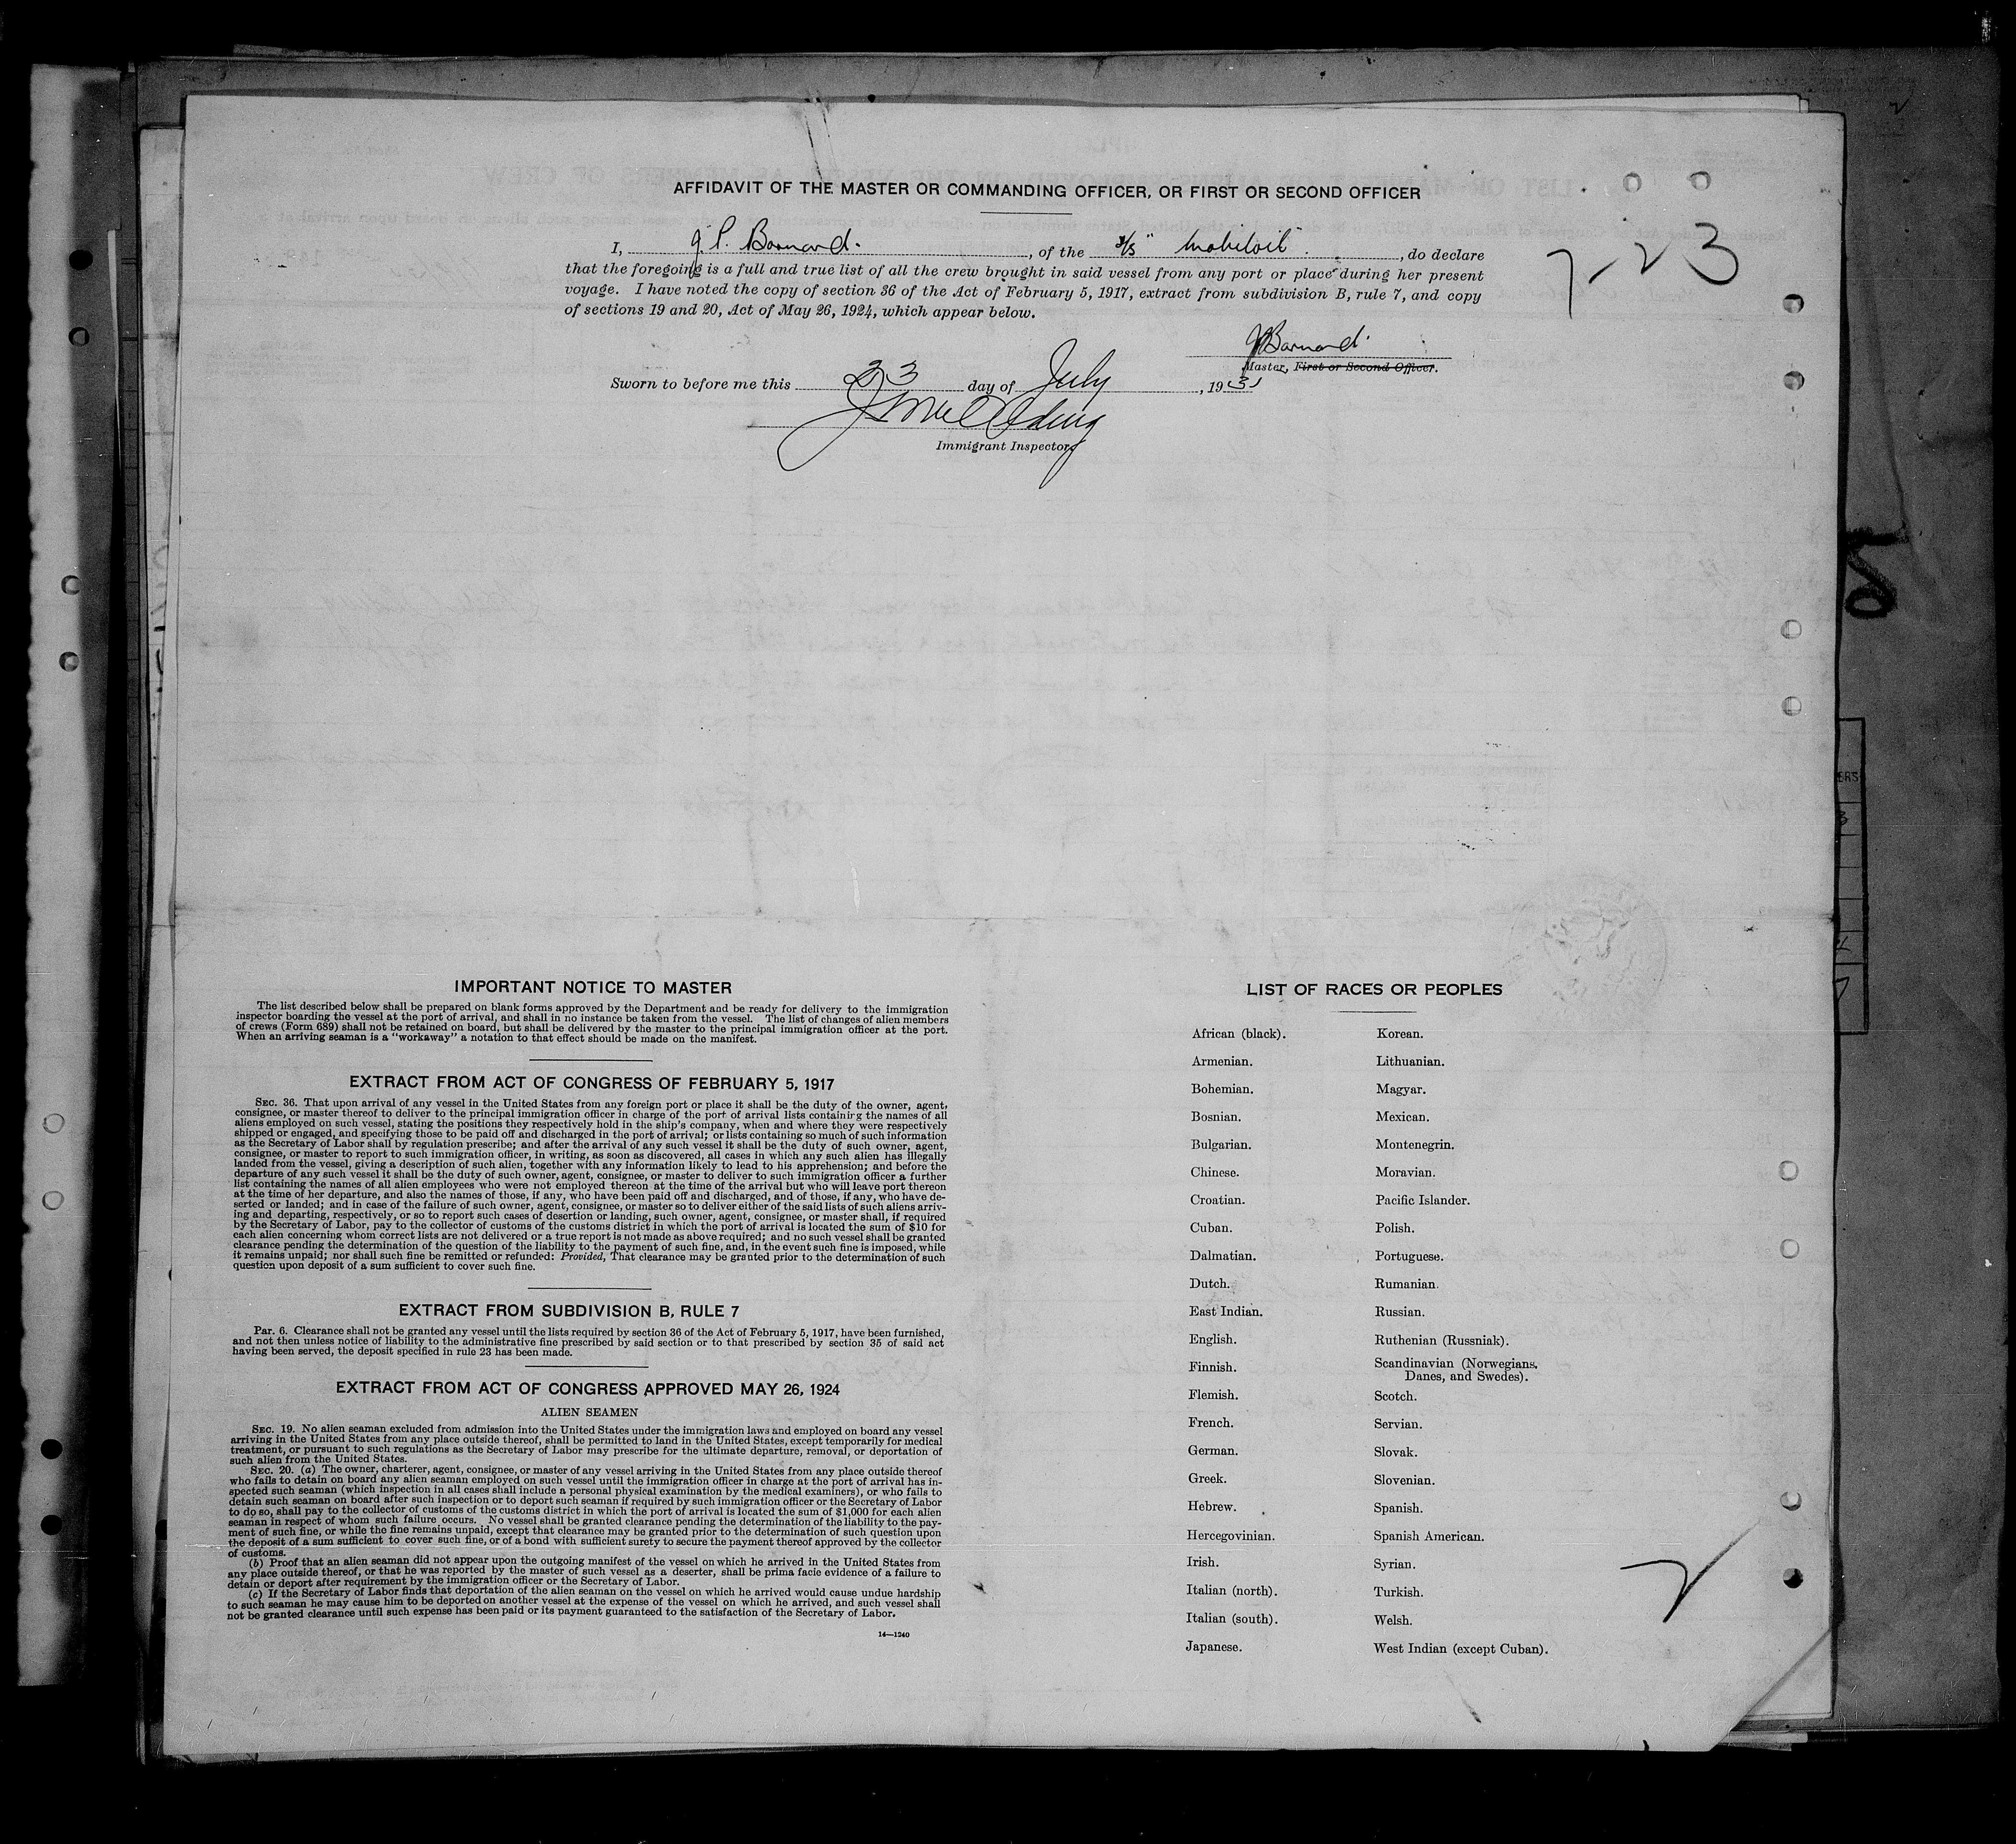 AFFIDAVIT OF THE MASTER OR COMMANDING OFFICER, OR FIRST OR SECOND OFFICER
I, J. P. Barnard. , of the S/S "Mobiloil". , do declare
that the foregoing is a full and true list of all the crew brought in said vessel from any port or place during her present
voyage. I have noted the copy of section 36 of the Act of February 5, 1917, extract from subdivision B, rule 7, and copy
of sections 19 and 20, Act of May 26, 1924, which appear below.
7-23
JPBarnard
Master, First or Second Officer.
Sworn to before me this 23 day of July , 1931
Immigrant Inspector.
IMPORTANT NOTICE TO MASTER
The list described below shall be prepared on blank forms approved by the Department and be ready for delivery to the immigration
inspector boarding the vessel at the port of arrival, and shall in no instance be taken from the vessel. The list of changes of alien members
of crews (Form 689) shall not be retained on board, but shall be delivered by the master to the principal immigration officer at the port.
When an arriving seaman is a "workaway" a notation to that effect should be made on the manifest.
EXTRACT FROM ACT OF CONGRESS OF FEBRUARY 5, 1917
SEC. 36. That upon arrival of any vessel in the United States from any foreign port or place it shall be the duty of the owner, agent,
consignee, or master thereof to deliver to the principal immigration officer in charge of the port of arrival lists containing the names of all
aliens employed on such vessel, stating the positions they respectively hold in the ship's company, when and where they were respectively
shipped or engaged, and specifying those to be paid off and discharged in the port of arrival; or lists containing so much of such information
as the Secretary of Labor shall by regulation prescribe; and after the arrival of any such vessel it shall be the duty of such owner, agent,
consignee, or master to report to such immigration officer, in writing, as soon as discovered, all cases in which any such alien has illegally
landed from the vessel, giving a description of such alien, together with any information likely to lead to his apprehension; and before the
departure of any such vessel it shall be the duty of such owner, agent, consignee, or master to deliver to such immigration officer a further
list containing the names of all alien employees who were not employed thereon at the time of the arrival but who will leave port thereon
at the time of her departure, and also the names of those, if any, who have been paid off and discharged, and of those, if any, who have de-
serted or landed; and in case of the failure of such owner, agent, consignee, or master so to deliver either of the said lists of such aliens arriv-
ing and departing, respectively, or so to report such cases of desertion or landing, such owner, agent, consignee, or master shall, if required
by the Secretary of Labor, pay to the collector of customs of the customs district in which the port of arrival is located the sum of $10 for
each alien concerning whom correct lists are not delivered or a true report is not made as above required; and no such vessel shall be granted
clearance pending the determination of the question of the liability to the payment of such fine, and, in the event such fine is imposed, while
it remains unpaid; nor shall such fine be remitted or refunded: Provided, That clearance may be granted prior to the determination of such
question upon deposit of a sum sufficient to cover such fine.
EXTRACT FROM SUBDIVISION B, RULE 7
Par. 6. Clearance shall not be granted any vessel until the lists required by section 36 of the Act of February 5, 1917, have been furnished,
and not then unless notice of liability to the administrative fine prescribed by said section or to that prescribed by section 35 of said act
having been served, the deposit specified in rule 23 has been made.
EXTRACT FROM ACT OF CONGRESS APPROVED MAY 26, 1924
ALIEN SEAMEN
SEC. 19. No alien seaman excluded from admission into the United States under the immigration laws and employed on board any vessel
arriving in the United States from any place outside thereof, shall be permitted to land in the United States, except temporarily for medical
treatment, or pursuant to such regulations as the Secretary of Labor may prescribe for the ultimate departure, removal, or deportation of
such alien from the United States.
SEC. 20. (a) The owner, charterer, agent, consignee, or master of any vessel arriving in the United States from any place outside thereof
who fails to detain on board any alien seaman employed on such vessel until the immigration officer in charge at the port of arrival has in-
spected such seaman (which inspection in all cases shall include a personal physical examination by the medical examiners), or who fails to
detain such seaman on board after such inspection or to deport such seaman if required by such immigration officer or the Secretary of Labor
to do so, shall pay to the collector of customs of the customs district in which the port of arrival is located the sum of $1,000 for each alien
seaman in respect of whom such failure occurs. No vessel shall be granted clearance pending the determination of the liability to the pay-
ment of such fine, or while the fine remains unpaid, except that clearance may be granted prior to the determination of such question upon
the deposit of a sum sufficient to cover such fine, or of a bond with sufficient surety to secure the payment thereof approved by the collector
of customs.
(b) Proof that an alien seaman did not appear upon the outgoing manifest of the vessel on which he arrived in the United States from
any place outside thereof, or that he was reported by the master of such vessel as a deserter, shall be prima facie evidence of a failure to
detain or deport after requirement by the immigration officer or the Secretary of Labor.
(c) If the Secretary of Labor finds that deportation of the alien seaman on the vessel on which he arrived would cause undue hardship
to such seaman he may cause him to be deported on another vessel at the expense of the vessel on which he arrived, and such vessel shall
not be granted clearance until such expense has been paid or its payment guaranteed to the satisfaction of the Secretary of Labor.
14—1240
LIST OF RACES OR PEOPLES
African (black).
Armenian.
Bohemian.
Bosnian.
Bulgarian.
Chinese.
Croatian.
Cuban.
Dalmatian.
Dutch.
East Indian.
English.
Finnish.
Flemish.
French.
German.
Greek.
Hebrew.
Hercegovinian.
Irish.
Italian (north).
Italian (south).
Japanese.
Korean.
Lithuanian.
Magyar.
Mexican.
Montenegrin.
Moravian.
Pacific Islander.
Polish.
Portuguese.
Rumanian.
Russian.
Ruthenian (Russniak).
Scandinavian (Norwegians,
Danes, and Swedes).
Scotch.
Servian.
Slovak.
Slovenian.
Spanish.
Spanish American.
Syrian.
Turkish.
Welsh.
West Indian (except Cuban).